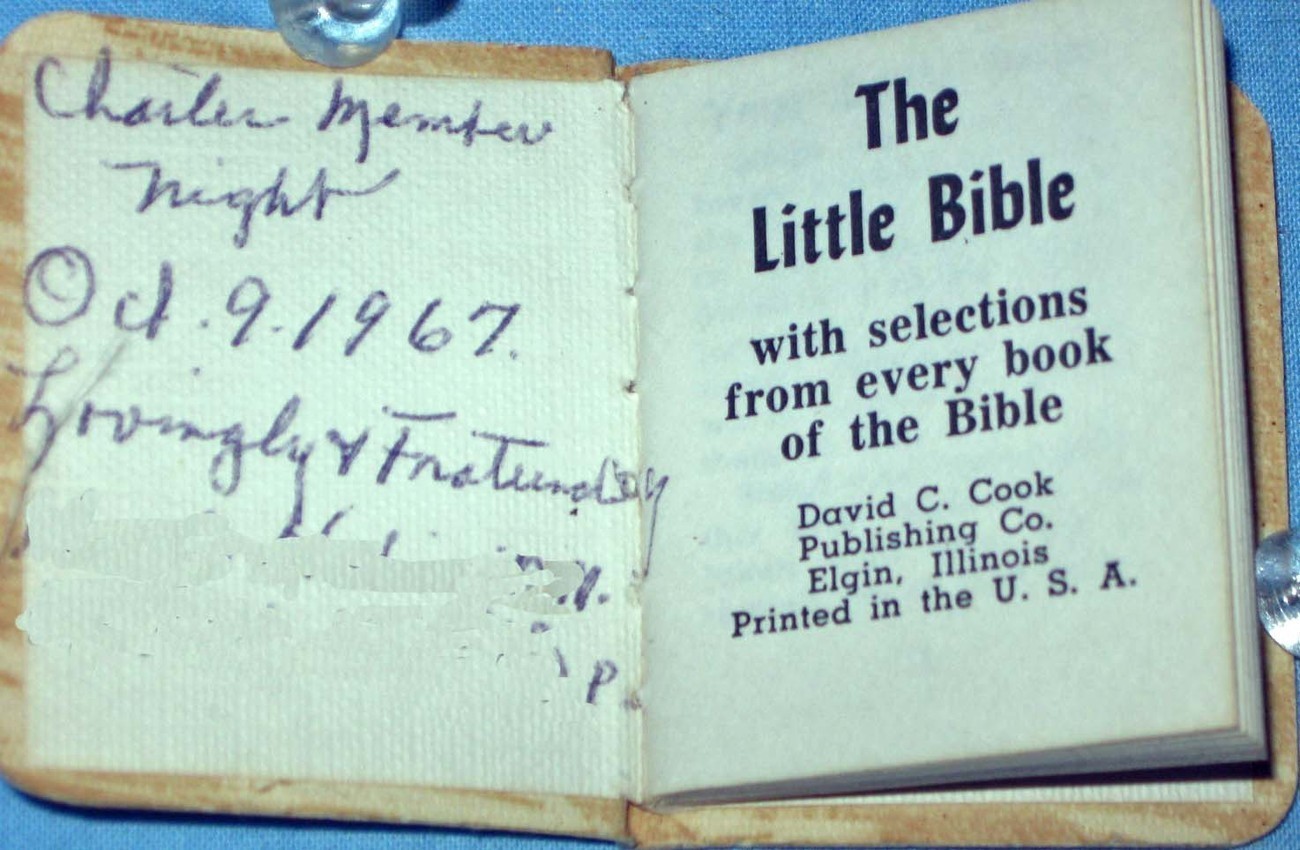 Charter Member
Night
Oct. 9. 1967.
Lovingly & Fraternally
P.
The
Little Bible
with selections
from every book
of the Bible
David C. Cook
Publishing Co.
Elgin, Illinois
Printed in the U. S. A.